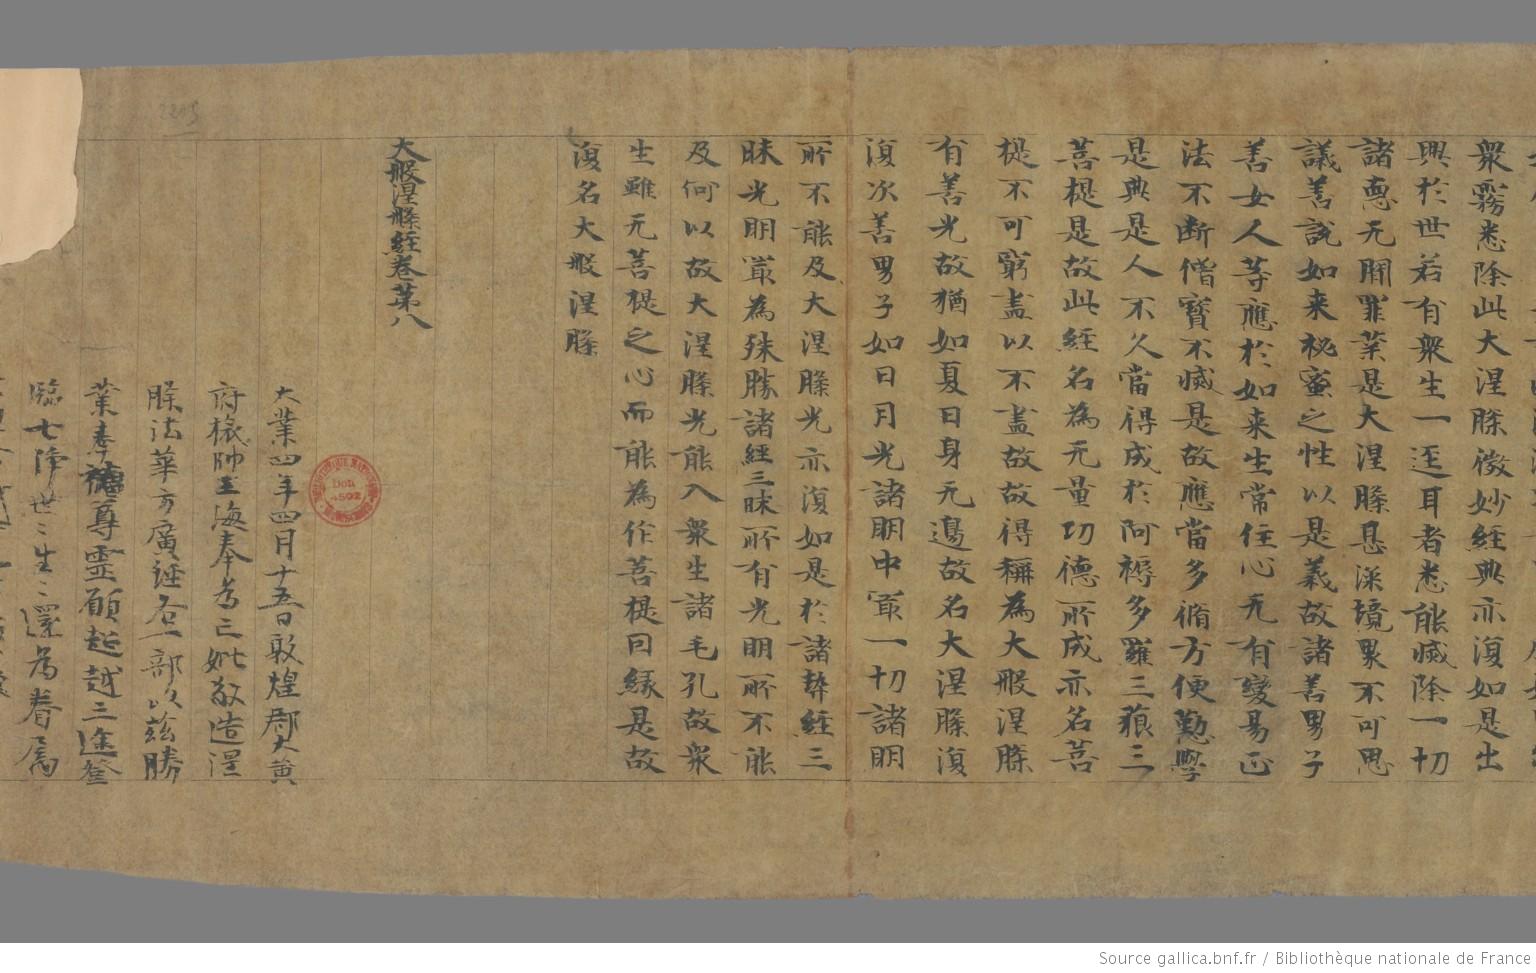 衆霧悉除此大涅槃微妙經典亦復如是出
興於世若有衆生一逕耳者悉能滅除一切
諸惡无間罪業是大涅槃甚深境界不可思
議善說如來秘蜜之性以是義故諸善男子
善女人等應於如來生常住心无有變易正
法不断僧寳不滅是故應當多脩方便懃學
是典是人不久當得成於阿耨多羅三藐三
菩提是故此經名為无量功德所成亦名菩
提不可窮盡以不盡故故得稱為大般涅槃
有善光故猶如夏日身无邊故名大涅槃復
復次善男子如日月光諸明中冣一切諸明
所不能及大涅槃光亦復如是於諸契經三
昧光明冣為殊勝諸經三昧所有光明所不能
及何以故大涅槃光能入衆生諸毛孔故衆
生雖无菩提之心而能為作菩提因緣是故
復名大般涅槃
大般涅槃經卷第八
大業四年四月十五日敦煌郡大黄
府旅帥王海奉為亡妣敬造涅
槃法華方廣經各一部以茲勝
業奉福尊靈願超越三途登
臨七淨世〻生〻還為眷屬
2205
BIBLIOTHÈQUE NATIONALE
Don
4502
Source gallica.bnf.fr / Bibliothèque nationale de France